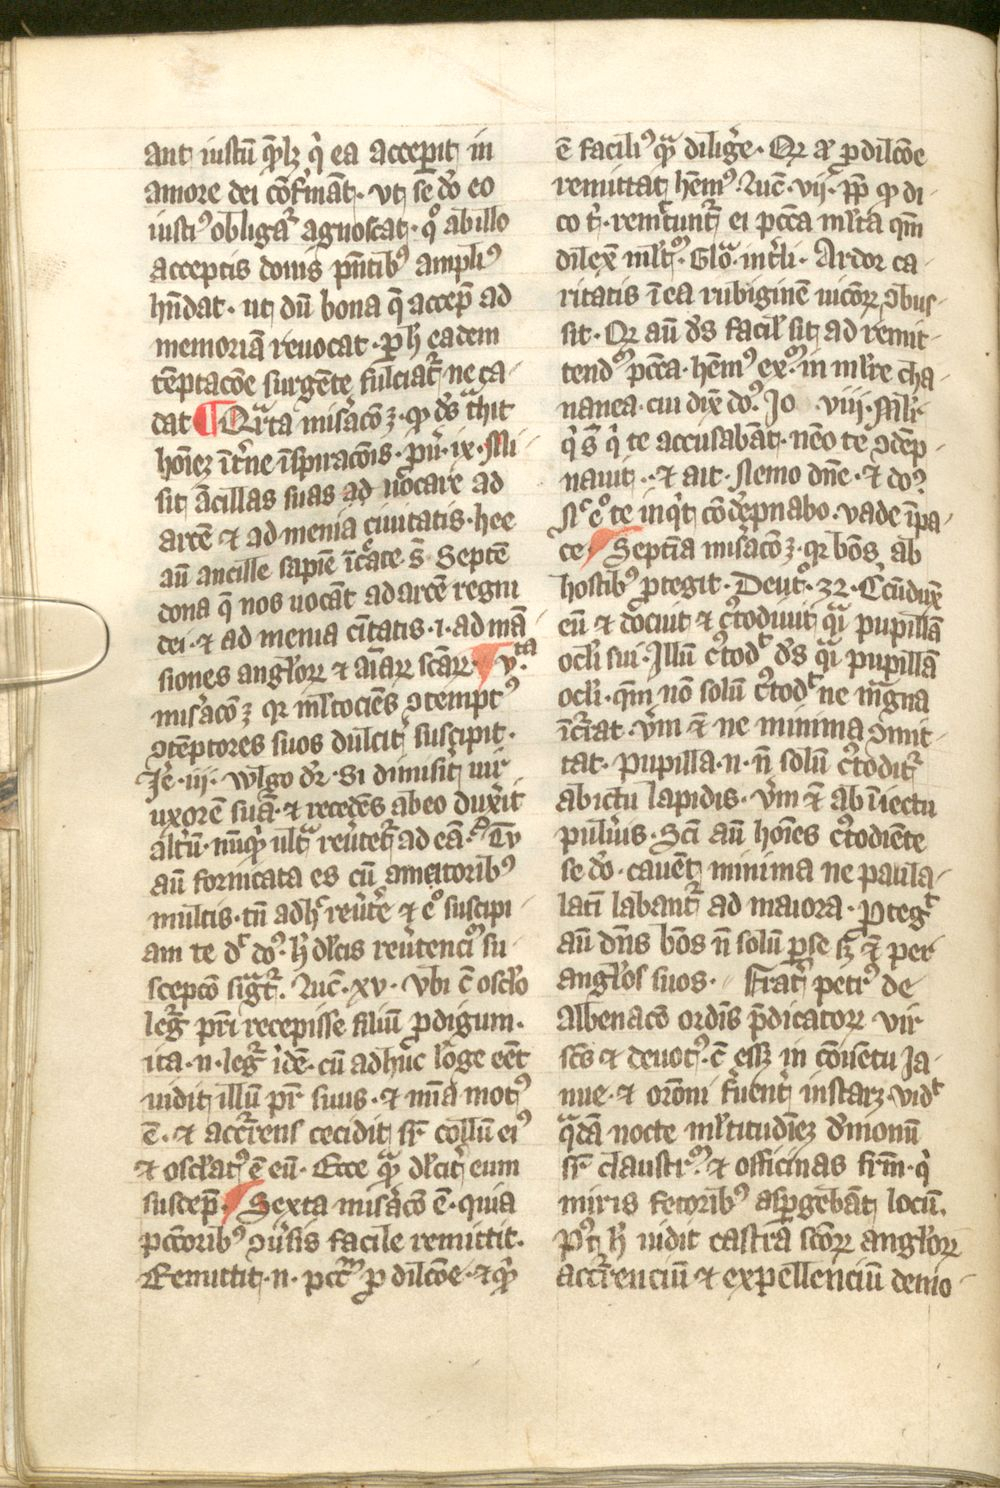 ant iustū qͣ̄lꝫ qͥ ea accepit in
amore dei ꝯ̄firmāt. vt se dō eo
iusti⁹ obligarͥ agnoscat. qͦ ab illo
acceptis donis pn̄tibꝰ ampliꝰ
hn̄dat. ut dū bona q̄ accep̄ ad
memoriā reuocat. ꝑ hͦ eadem
tēptacōe surgēte fulciatͬ ne ca-
dat ¶ Qͣrta misͬacōꝫ. qꝫ dͣs tͣhit
hoīeꝫ īt̓ne īspiracōis. ꝓu̓. ix. Mi-
sit ācillas suas ad uo̓care ad
arcē ⁊ ad menia ciuitatis. hee
aū ancille sapiē īcͬate. s̄ septē
dona q̄ nos uocāt ad arcē regni
dei. ⁊ ad menia cītatis .i. ad mā-
siones angl̓oꝝ ⁊ aīaꝝ scāꝝ. ¶ v.ᵗᵃ
misͬacōꝫ qꝛ ml̓tociēs ꝯtemptꝰ
ꝯtēptores suos dulcitͬ suscipit.
Je͛. iii. vulgo dͬ. Si dimisitͬ uir
uxorē suā. ⁊ recedēs ab eo dux̓it
alt̓ū. nūqͥ ultͣ reu̓tetͬ ad eā. Tu
aū fornicata es cū amatoribꝰ
multis. tn̄ adhͨ reu̓te̓ ⁊ eͦ suscipi-
am te dͭ dō. hͦ dl̓cis reu̓tenciū su-
scepcō sigͣtͬ. Luc̄. xv. vbi c̄ oscl̓o
legͬ pr̄i recepisse filiū ꝓdigum.
ita .n. legͬ ide̅. cū adhuc lōge eēt
uidit illū pr̄ suus. ⁊ mīa motꝰ
ē. ⁊ acc̓rens cecidit sͬ collū eiꝰ
⁊ oscl̓atꝰ ē eū. Ecce qͣ dl̓citͬ eum
suscep̄. ¶ Sexta misͬacō ē. quia
pcc̄oribꝰ ꝯu̓sis facile remittit.
Remittit .n. pctͫ ꝓ dilcōe. ⁊ qꝫ
ē faciliꝰ qͣ dilig̓e. Qꝛ aͫ ꝓ dilcōe
remittat hēmꝰ. Luc̄. vii. ꝓp̄ qꝫ di-
co tͥ. remictuntͬ ei pcc̄a ml̓ta qm̄
dilex̄ ml̓tͫ. Glōͣ int̓li. Ardor ca-
ritatis ī ea rubiginē uicōꝝ ꝯbus-
sit. Qꝛ aū dͣs facil̓ sit ad remit-
tendͫ pcc̄a. hēmꝰ exͫ. in ml̓re cha-
nanea. cui dix̄ dō. Jo viii. Mlͥr
qͥ s̄ qͥ te accusabāt. nēo te ꝯdēp-
nauit. ⁊ ait. Nemo dn̄e. ⁊ dō.
Nͨ eͦ te inqͥt cōdēpnabo. vade ī pa-
ce. ¶ Septīa misͬacōꝫ. qꝛ bōs ab
hostibꝰ ꝓtegit. Deut̓. 32. Cͥcūdux̄
eū ⁊ docuit ⁊ cͬtodiuit qͣi pupillā
ocl̓i sui. Illū cͬtodͭ dͣs qͣi pupillā
ocl̓i. qm̄ nō solū cͬtodͭ ne magna
īcͬrat. vͬm ⁊̄ ne minima ꝯmit-
tat. pupilla .n. n̄ solū cͬtoditͬ
ab ictu lapidis. vͬm ⁊̄ ab īiectu
pulu̓is. Scī aū hoīes cͬtodiēte
se dō. cauēt minima ne paula-
latī labantͬ ad maiora. Ꝓtegͭ
aū dn̄s bōs n̄ solū ꝑ se sꝫ ⁊̄ per
angl̓os suos. Fratͬ petrꝰ de
Albenaco ordīs p̄dicatoꝝ vir
sc̄s ⁊ deuotꝰ. c̄ eēꝫ in cōuentu Ja-
nue. ⁊ orōni fͬuentͬ instaꝛꝫ. vidͭ
qͣdā nocte ml̓titudīeꝫ dͤmonū
sͬ claustrͫ ⁊ officinas frm̄. qͥ
miris fetoribꝰ aspͬgebāt locū.
Pꝰt hͦ uidit castra scōꝝ angl̓oꝝ
acc̓renciū ⁊ expellenciū demo-